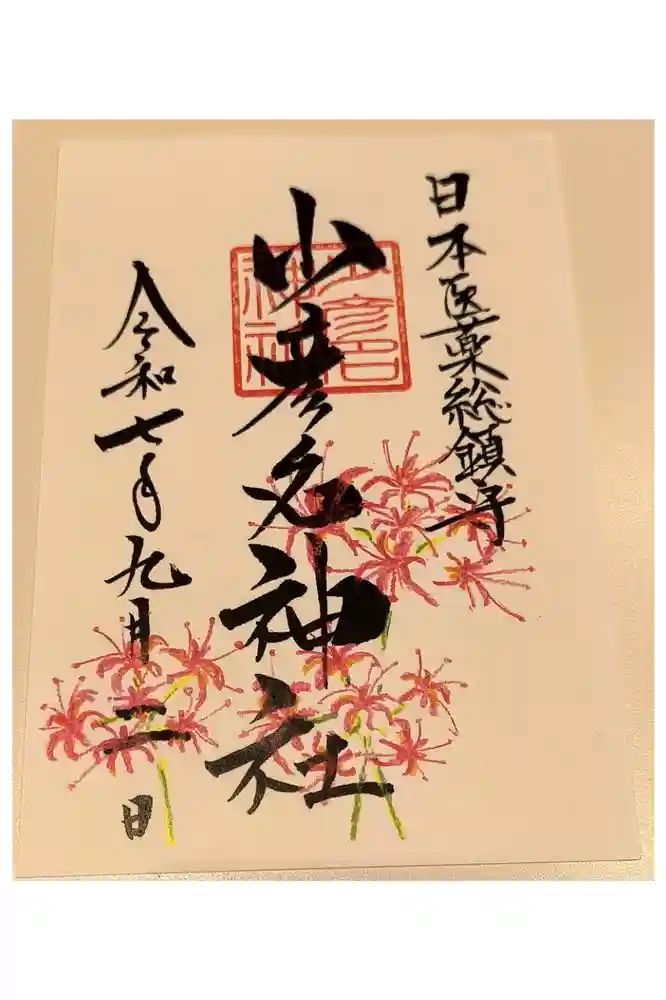 日本医薬総鎮守
少彦名神社
少彦名
神社
令和七年九月二日